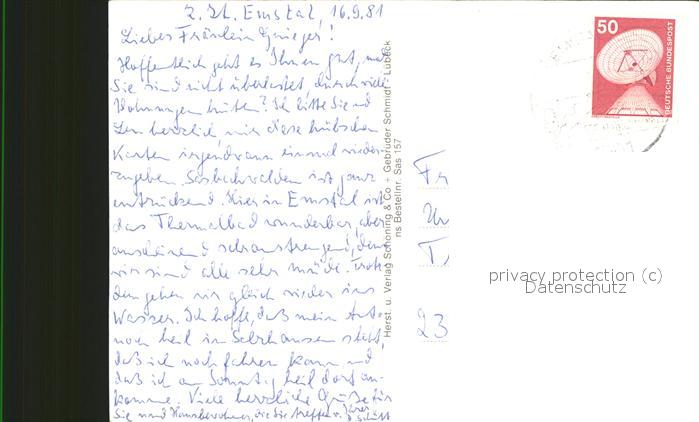 z. Zt. Emstal, 16.9.81
Liebes Fräulein
Hoffentlich geht es Ihnen gut, und
Sie sind nicht überlastet, durch viele
Wohnungen hüten? Ich bitte Sie
herzlich mir diese hübschen
Karten irgendwann einmal wieder-
zugeben. Sasbachwalden ist ganz
entzückend. Hier in Emstal ist
das Thermalbad wunderbar, aber
anscheinend sehr anstrengend, denn
wir sind alle sehr müde. Trotz-
dem gehen wir gleich wieder ins
Wasser. Ich hoffe, daß mein Auto
noch heil in steht,
daß ich noch fahren kann und
daß ich am Sonntag heil dort an-
komme. Viele herzliche Grüße für
Sie und Hausbewohner, die Sie treffen v. Ihrer
Herst. u. Verlag Schöning & Co + Gebrüder Schmidt - Lübeck
ns Bestellnr. Sas 157
50
DEUTSCHE BUNDESPOST
Fr
T
23
privacy protection (c)
Datenschutz